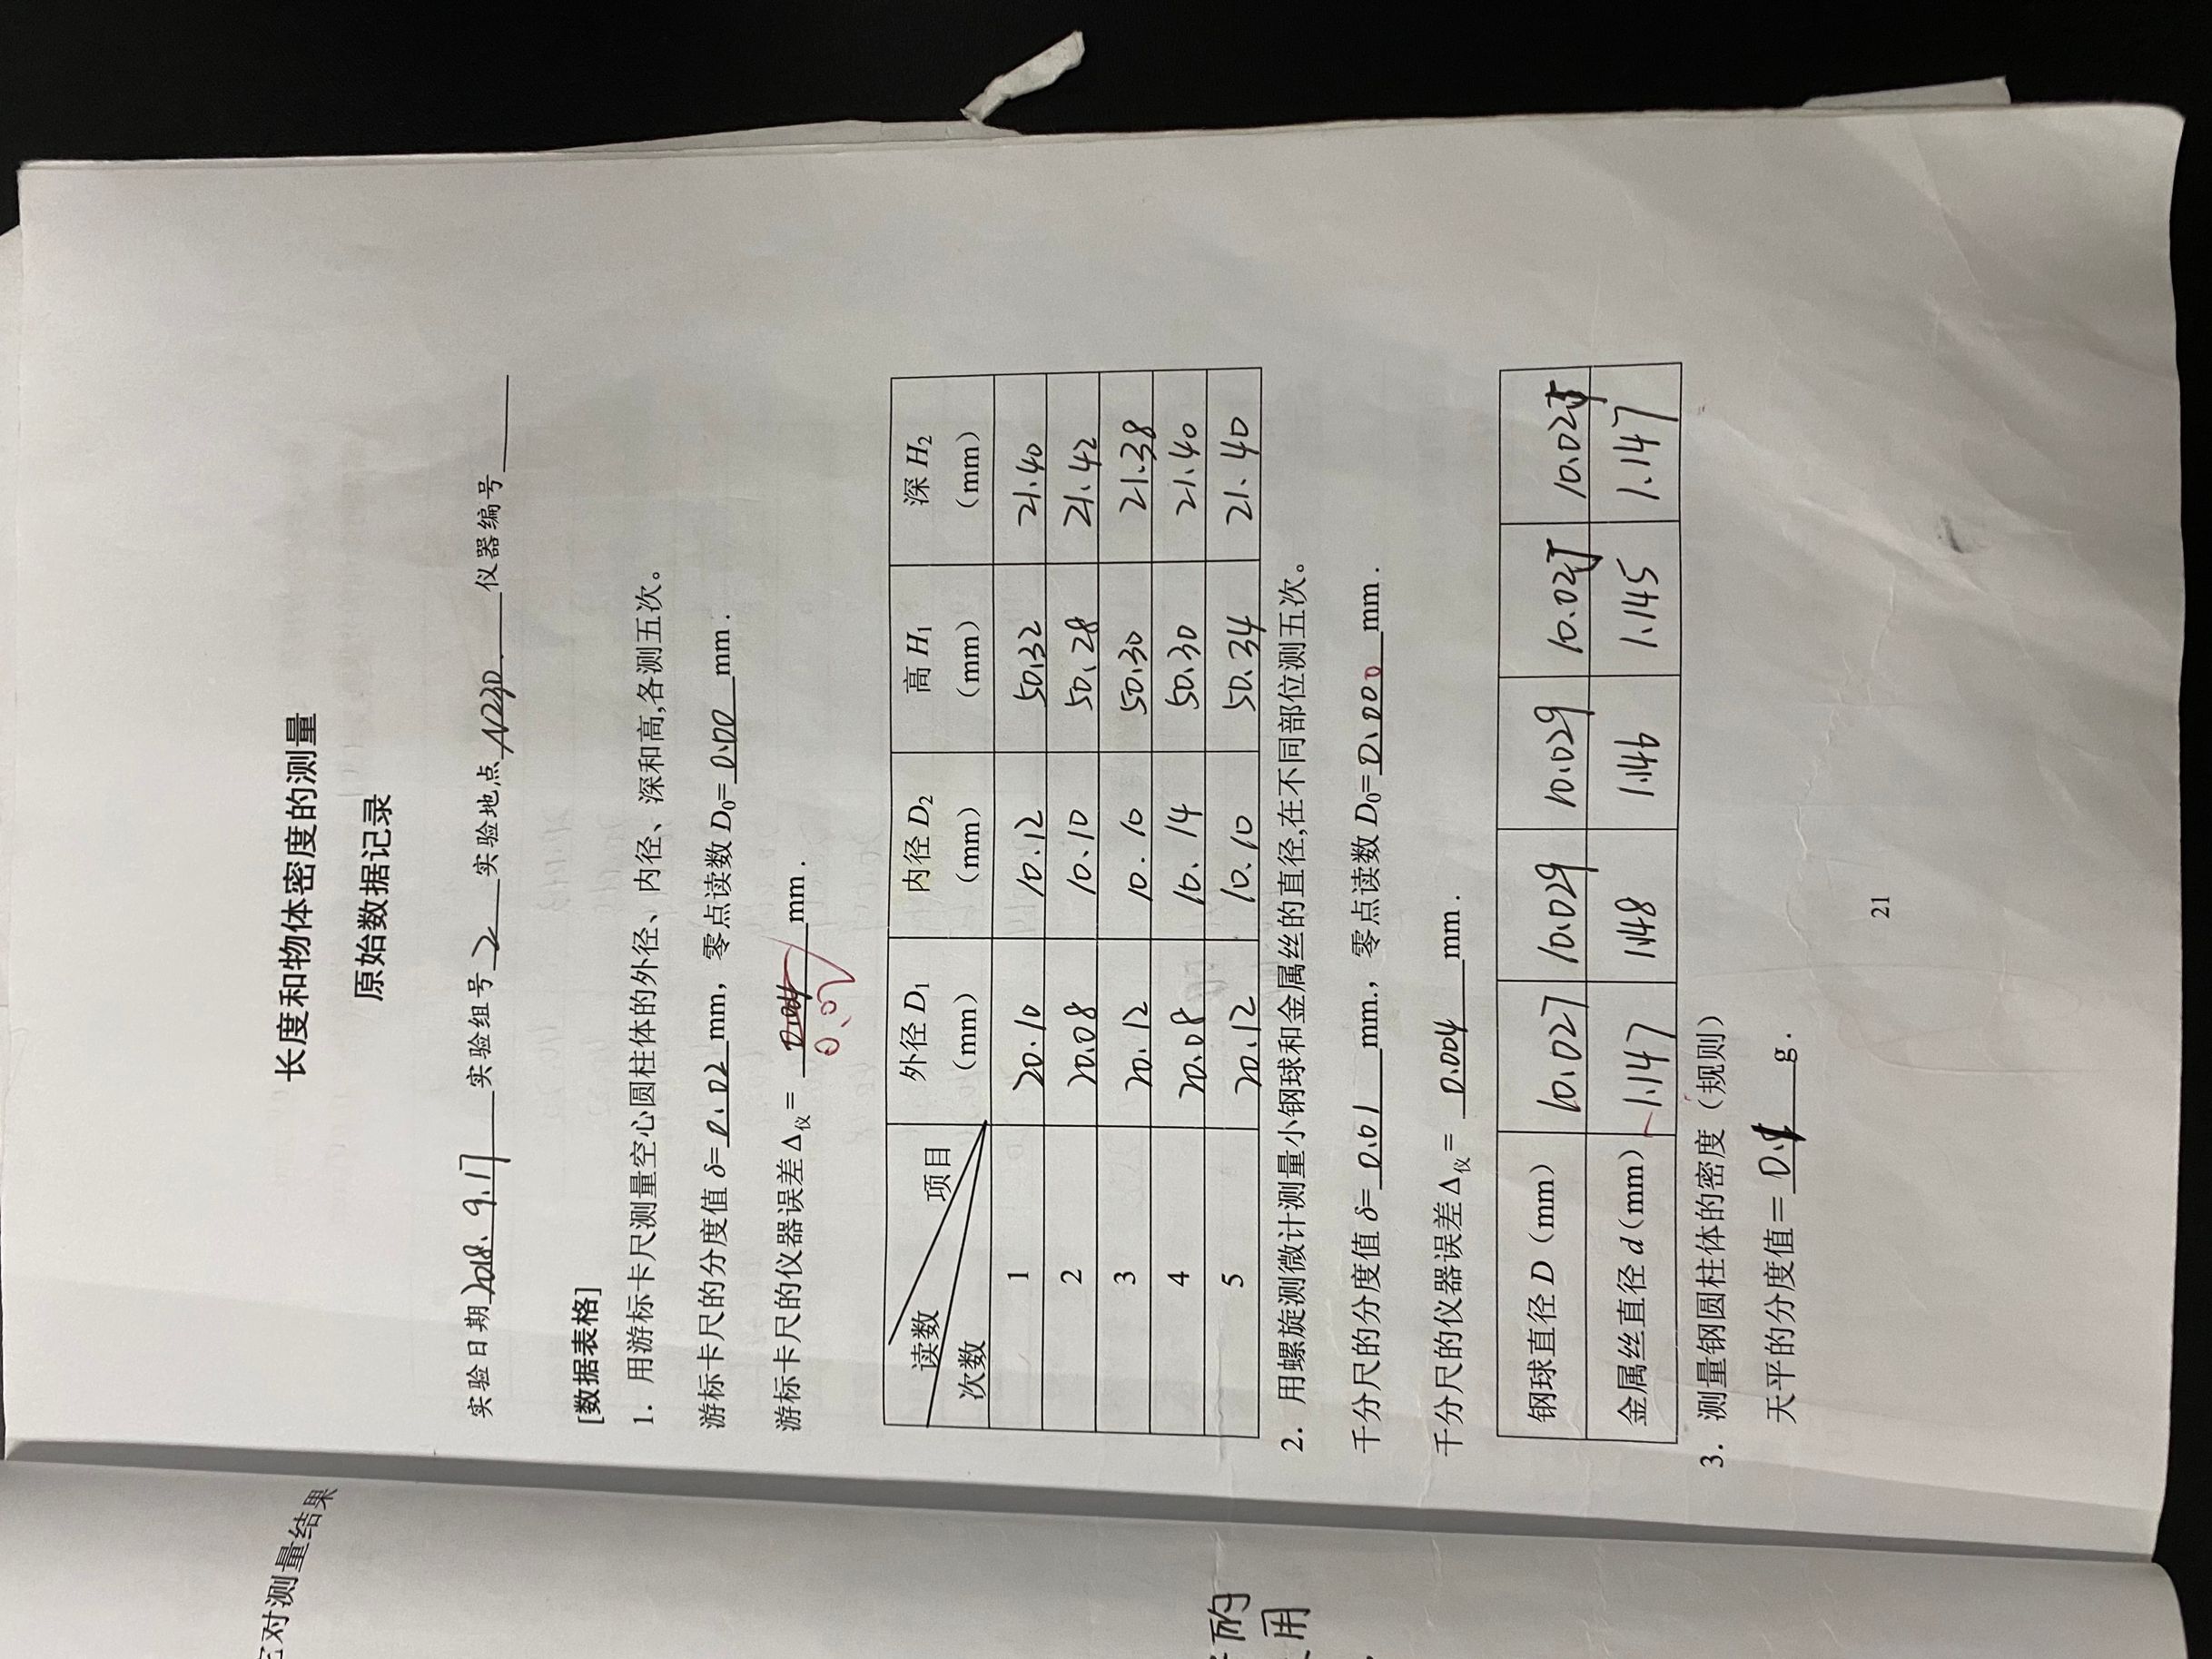 它对测量结果
的
用
长度和物体密度的测量
原始数据记录
实验日期2018.9.17 实验组号2 实验地点N230. 仪器编号
[数据表格]
1. 用游标卡尺测量空心圆柱体的外径、内径、深和高,各测五次。
游标卡尺的分度值 δ=0.02mm，零点读数 D₀=0.00mm .
游标卡尺的仪器误差 Δ仪= 0.004 mm .
0.02
读数 项目 次数 外径 D₁（mm） 内径 D₂（mm） 高 H₁（mm） 深 H₂（mm）
1 20.10 10.12 50.32 21.40
2 20.08 10.10 50.28 21.42
3 20.12 10.10 50.30 21.38
4 20.08 10.14 50.30 21.40
5 20.12 10.10 50.34 21.40
2. 用螺旋测微计测量小钢球和金属丝的直径,在不同部位测五次。
千分尺的分度值 δ=0.01mm.，零点读数 D₀=0.000mm .
千分尺的仪器误差 Δ仪= 0.004 mm .
钢球直径 D（mm） 10.027 10.029 10.029 10.025 10.025
金属丝直径 d（mm） 1.147 1.148 1.146 1.145 1.147
3. 测量钢圆柱体的密度（规则）
天平的分度值＝0.1g .
21